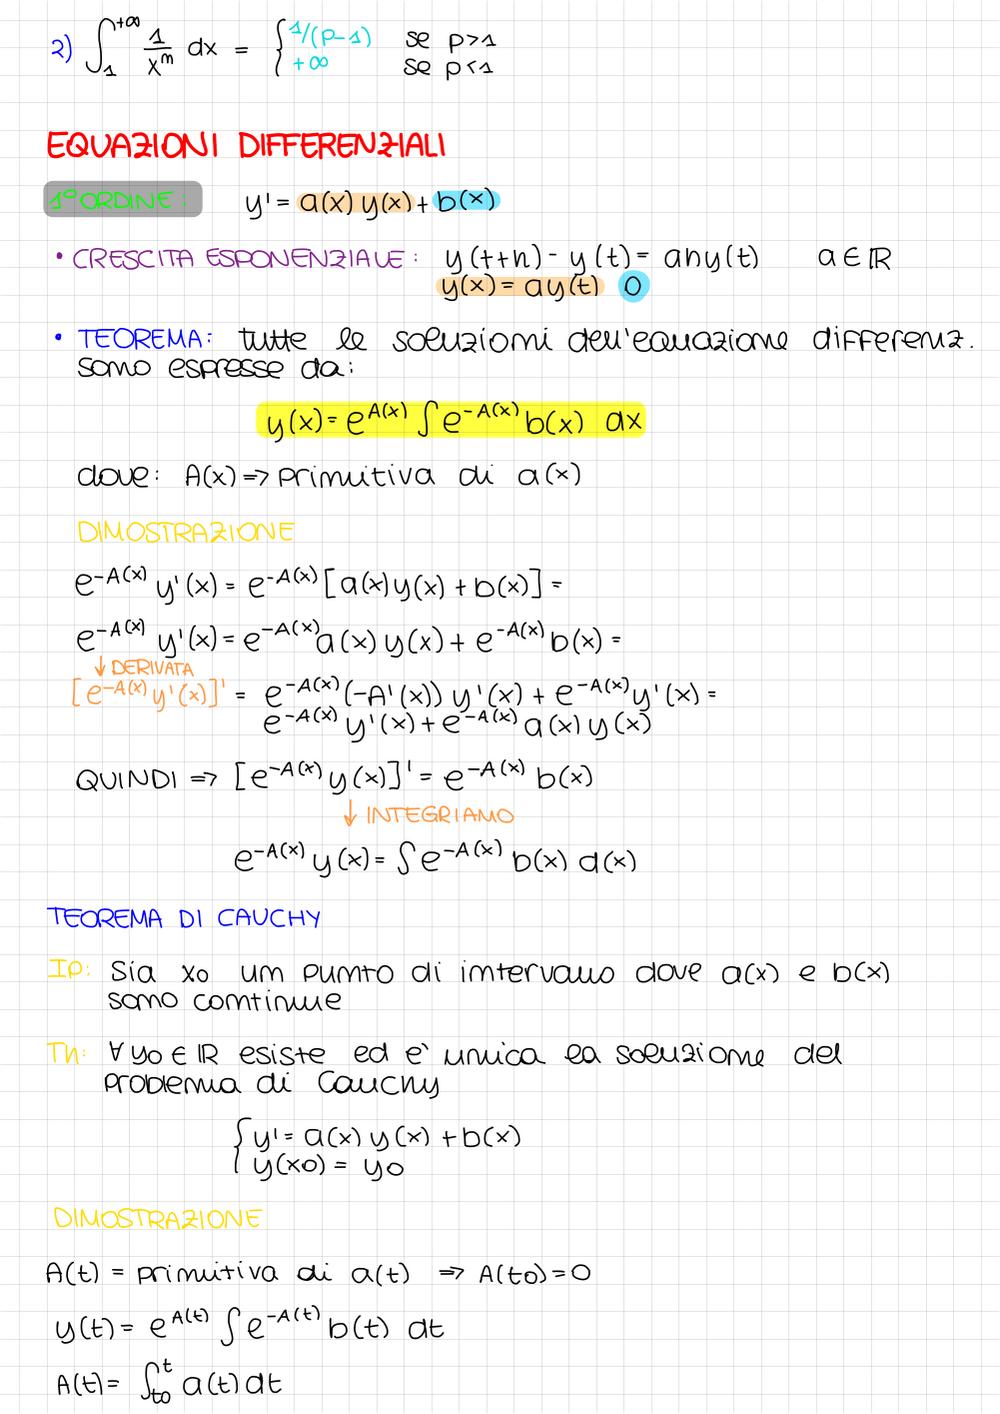 2) ∫₁^{+∞} 1/x^m dx = { 1/(p-1) se p>1
+∞ se p<1
EQUAZIONI DIFFERENZIALI
1° ORDINE: y' = a(x) y(x) + b(x)
• CRESCITA ESPONENZIALE: y(t+h) - y(t) = ahy(t) a ∈ ℝ
y(x) = ay(t) 0
• TEOREMA: tutte le soluzioni dell'equazione differenz.
sono espresse da:
y(x) = e^{A(x)} ∫ e^{-A(x)} b(x) dx
dove: A(x) => primitiva di a(x)
DIMOSTRAZIONE
e^{-A(x)} y'(x) = e^{-A(x)} [a(x)y(x) + b(x)] =
e^{-A(x)} y'(x) = e^{-A(x)} a(x) y(x) + e^{-A(x)} b(x) =
↓ DERIVATA
[e^{-A(x)} y'(x)]' = e^{-A(x)} (-A'(x)) y'(x) + e^{-A(x)} y'(x) =
e^{-A(x)} y'(x) + e^{-A(x)} a(x) y(x)
QUINDI => [e^{-A(x)} y(x)]' = e^{-A(x)} b(x)
↓ INTEGRIAMO
e^{-A(x)} y(x) = ∫ e^{-A(x)} b(x) d(x)
TEOREMA DI CAUCHY
Ip: Sia x0 un punto di intervallo dove a(x) e b(x)
sono continue
Th: ∀ y0 ∈ ℝ esiste ed e' unica la soluzione del
problema di Cauchy
{ y' = a(x) y(x) + b(x)
y(x0) = y0
DIMOSTRAZIONE
A(t) = primitiva di a(t) => A(t0) = 0
y(t) = e^{A(t)} ∫ e^{-A(t)} b(t) dt
A(t) = ∫_{t0}^{t} a(t) dt